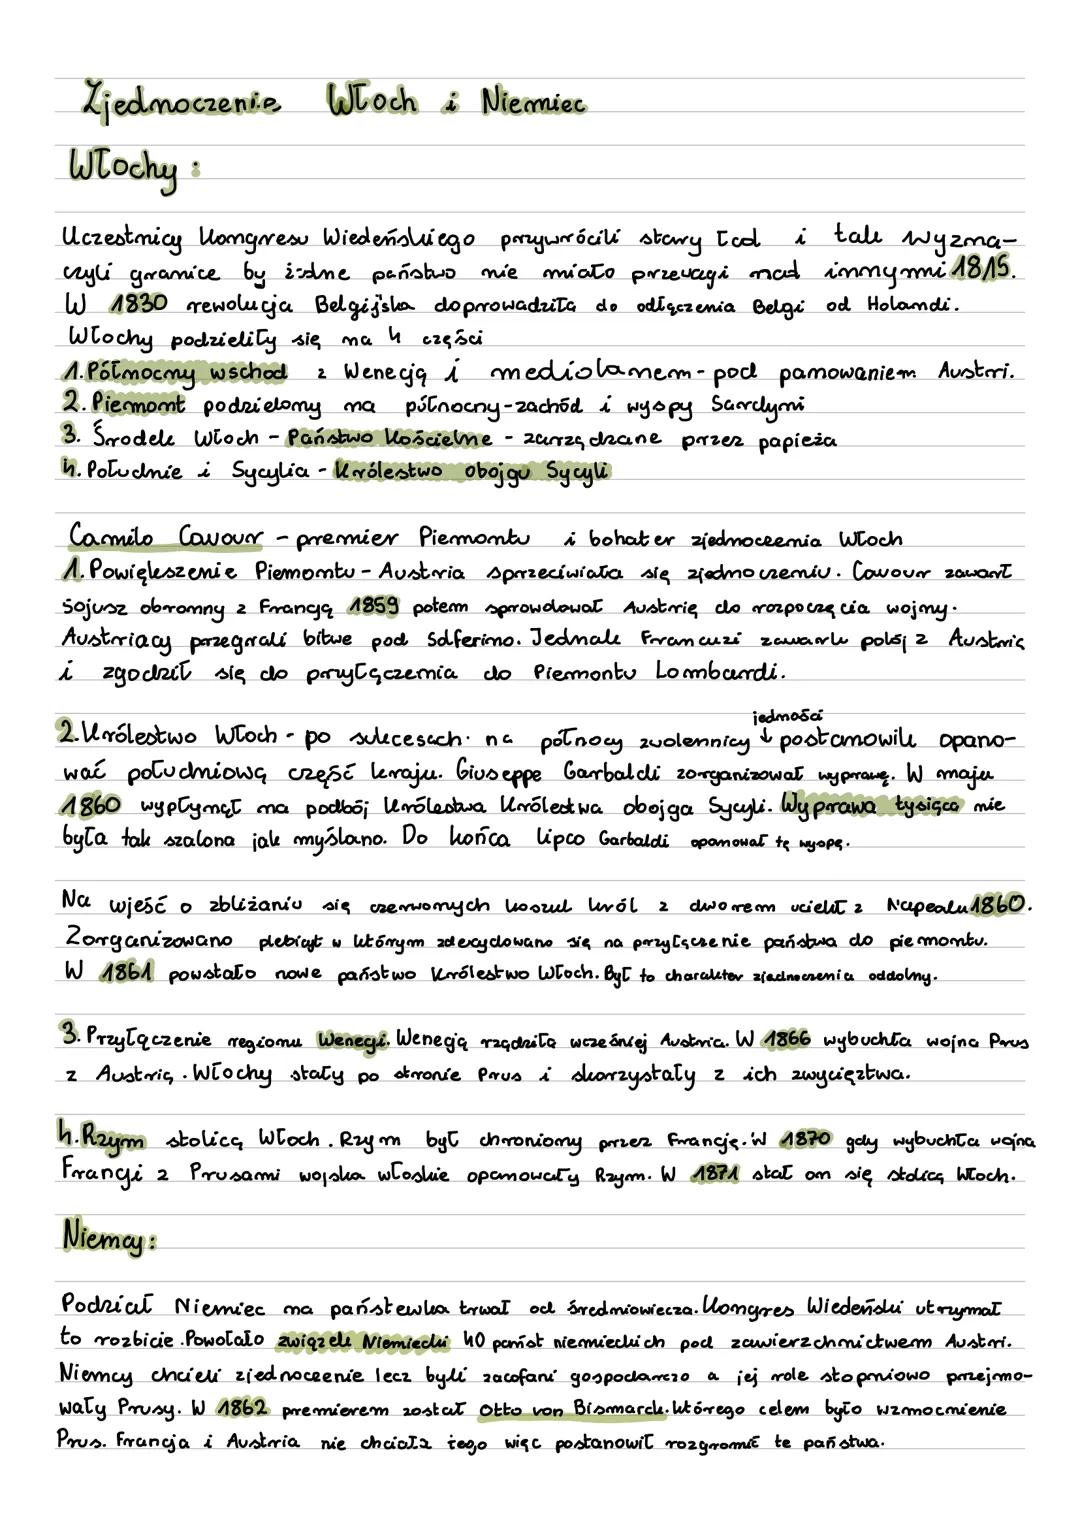 Zjednoczenie Włoch i Niemiec
Włochy:
Uczestnicy Kongresu Wiedeńskiego przywrócili stary ład i tak wyzna-
czyli granice by żadne państwo nie miało przewagi nad innymi 1815.
W 1830 rewolucja Belgijska doprowadziła do odłączenia Belgi od Holandi.
Włochy podzieliły się na 4 części
1. Północny wschod z Wenecją i mediolanem - pod panowaniem Austri.
2. Piemont podzielony na północny-zachód i wyspy Sardyni
3. Środek Włoch - Państwo Kościelne - zarządzane przez papieża
4. Południe i Sycylia - Królestwo obojgu Sycyli
Camilo Cavour - premier Piemontu i bohater zjednoczenia Włoch
1. Powiększenie Piemontu - Austria sprzeciwiała się zjednoczeniu. Cavour zawarł
sojusz obronny z Francją 1859 potem sprowdował Austrię do rozpoczęcia wojny.
Austriacy przegrali bitwe pod Solferino. Jednak Francuzi zawarli pokój z Austrią
i zgodził się do przyłączenia do Piemontu Lombardi.
jednośći
2. Królestwo Włoch - po sukcesach na północy zwolennicy ↓ postanowili opano-
wać południową część kraju. Giuseppe Garbaldi zorganizował wyprawę. W maju
1860 wypłynął na podbój Królestwa Królestwa obojga Sycyli. Wyprawa tysiąca nie
była tak szalona jak myślano. Do końca lipca Garbaldi opanował tę wyspę.
Na wjeść o zbliżaniu się czerwonych koszul król z dworem uciekł z Neapolu 1860.
Zorganizowano plebicyt w którym zdecydowano się na przyłączenie państwa do piemontu.
W 1861 powstało nowe państwo Królestwo Włoch. Był to charakter zjednoczenia oddolny.
3. Przyłączenie regionu Wenegi. Wenegią rządziła wcześniej Austria. W 1866 wybuchła wojna Prus
z Austrią. Włochy stały po stronie Prus i skorzystały z ich zwycięztwa.
4. Rzym stolicą Włoch. Rzym był chroniony przez Francję. W 1870 gdy wybuchła wojna
Francji z Prusami wojska włoskie opanowały Rzym. W 1871 stał on się stolicą Włoch.
Niemcy:
Podział Niemiec na państewka trwał od średniowiecza. Kongres Wiedeński utrzymał
to rozbicie. Powołało związek Niemiecki 40 państ niemieckich pod zawierzchnictwem Austri.
Niemcy chcieli zjednoczenie lecz byli zacofani gospodarczo a jej role stopniowo przejmo-
wały Prusy. W 1862 premierem został Otto von Bismarck. Którego celem było wzmocnienie
Prus. Francja i Austria nie chciała tego więc postanowił rozgromić te państwa.